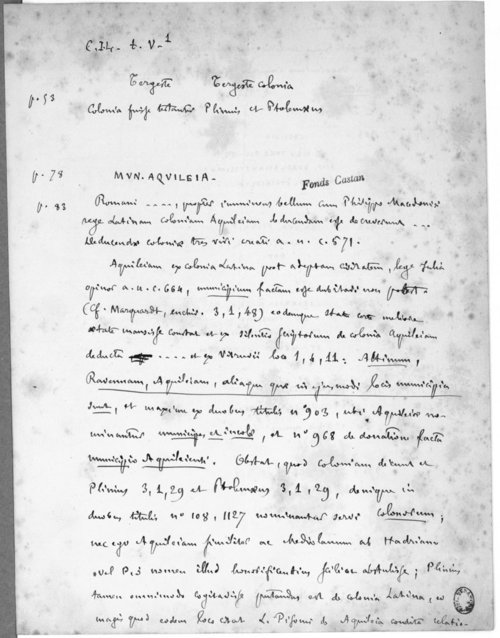 C.I.L. t. V.1
Tergeste Tergeste colonia
p. 53
Colonia fuisse testantur Plinius et Ptolemæus
p. 78 MVN. AQVILEIA.
Fonds Castan
p. 83 Romani ...., propter imminens bellum cum Philippo Macedoniæ
rege Latinam coloniam Aquileiam deducendam esse decreverunt ...
Deducendæ coloniæ tres viri creati a. u. c. 571.
Aquileiam ex colonia Latina post adeptam civitatem, lege Julia
opinor a. u. c. 664, municipium factam esse dubitari non potest.
(Cf. Marquardt, enchir. 3, 1, 48) eodemque statu certe meliore
ætate mansisse constat et ex silentio scriptorum de colonia Aquileiam
deducta .... et ex Vitruvii loco 1, 4, 11: Altinum,
Ravennam, Aquileiam, aliaque quæ in ejusmodi locis municipia
sunt, et maxime ex duobus titulis nº 903, ubi Aquileiæ no-
minantur municipes et incolæ, et nº 968 de donatione facta
municipio Aquileiensi. Obstat, quod coloniam dicunt et
Plinius 3, 1, 29 et Ptolemæus 3, 1, 29, denique in
duobus titulis nº 108, 1127 nominantur servi colonorum;
nec ego Aquileiam similiter ac Mediolanum at Hadriano
vel P. 3 nomen illud honorificentius scilicet abstulisse; Plinius
tamen omnimodo cogitavisse putandus est de colonia Latina, eo
magis quod eodem loco citat L. Pisonis de Aquileia condita relatio-